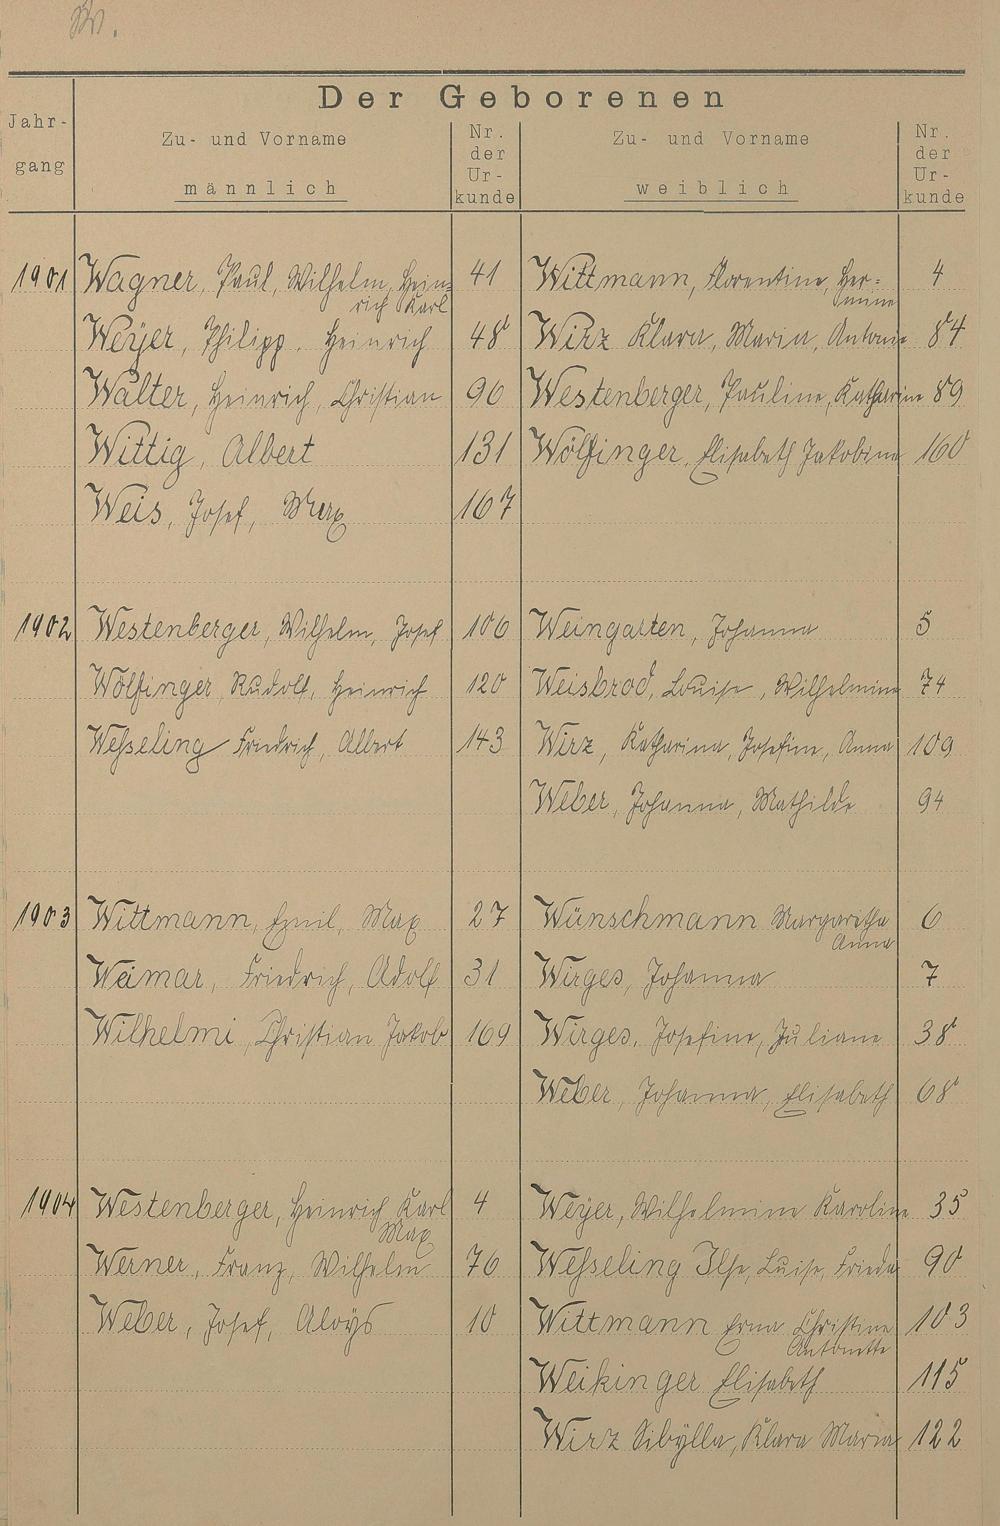 W.
Der Geborenen
Jahr-
gang
Zu- und Vorname
männlich
Nr.
der
Ur-
kunde
Zu- und Vorname
weiblich
Nr.
der
Ur-
kunde
1901 Wagner, Paul, Wilhelm, Hein= 41 Wittmann, Florentine, Her= 4
rich Karl mine
Weÿer, Philipp, Heinrich 48 Wirz Klara, Maria, Antonie 84
Walter, Heinrich, Christian 96 Westenberger, Pauline, Katharine 89
Wittig, Albert 131 Wölfinger, Elisabeth Jakobine 160
Weis, Josef, Max 167
1902 Westenberger, Wilhelm, Josef 106 Weingarten, Johanna 5
Wölfinger Rudolf, Heinrich 120 Weisbrod, Louise, Wilhelmine 74
Weßseling Friedrich, Albert 143 Wirz, Katharina, Josefine, Anna 109
Weber, Johanna, Mathilde 94
1903 Wittmann, Emil, Max 27 Wünschmann Margaretha 6
Anna
Weimar, Friedrich, Adolf 31 Wirges, Johanna 7
Wilhelmi, Christian Jakob 169 Wirges, Josefine, Juliane 38
Weber, Johanna, Elisabeth 68
1904 Westenberger, Heinrich Karl 4 Weyer, Wilhelmine Karoline 35
Max
Werner, Franz, Wilhelm 76 Weßseling Ilse, Luise, Frieda 90
Weber, Josef, Aloÿs 10 Wittmann Erna Christine 103
Antonette
Weikinger Elisabeth 115
Wirz Sibÿlla, Klara Maria 122